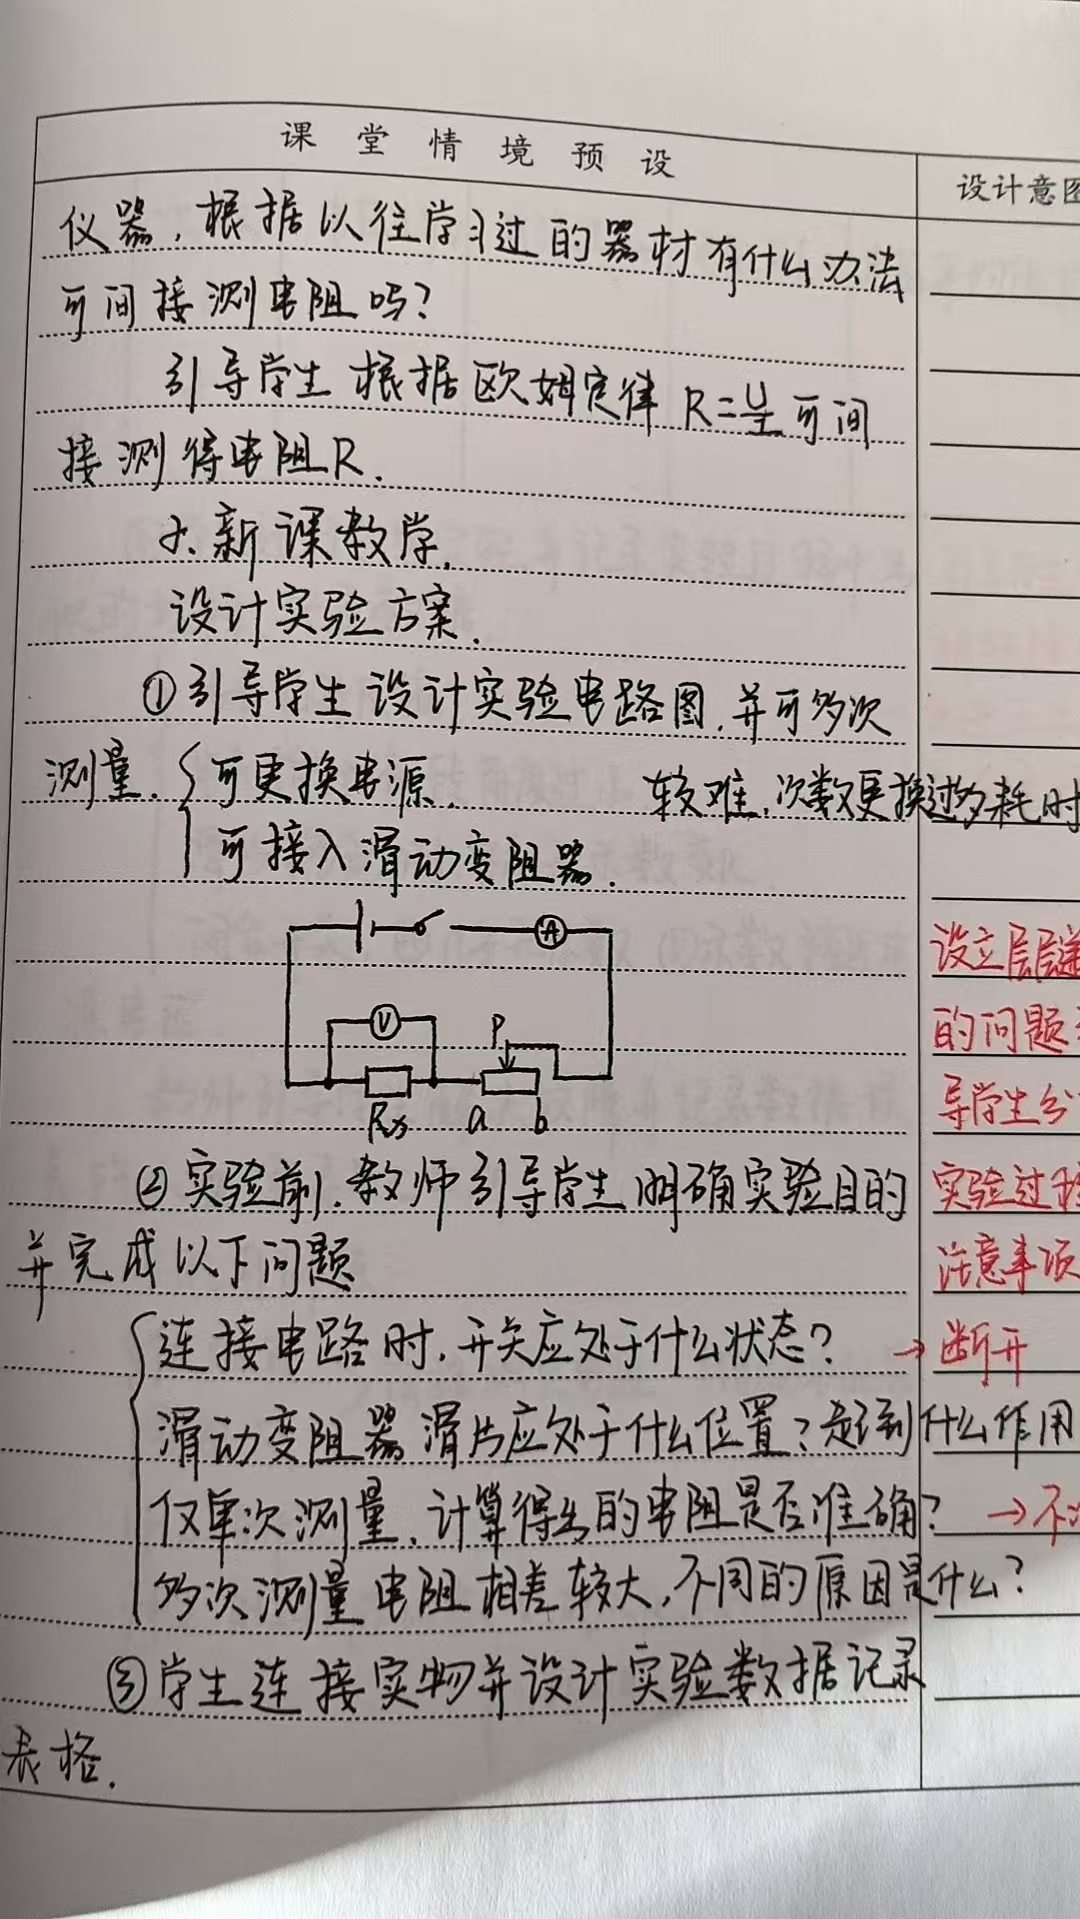 课堂情境预设
设计意图
仪器，根据以往学习过的器材有什么办法
可间接测电阻吗？
引导学生根据欧姆定律 R=U/I 可间
接测得电阻R.
新课教学.
设计实验方案.
①引导学生设计实验电路图，并可多次
测量. 可更换电源. 较难，次数更换过多耗时
可接入滑动变阻器.
A
V
P
Rx a b
设立层层递
的问题
导学生分
实验过程
注意事项
②实验前，教师引导学生明确实验目的
并完成以下问题
连接电路时，开关应处于什么状态？ →断开
滑动变阻器滑片应处于什么位置？起到什么作用
仅单次测量，计算得出的电阻是否准确？ →不
多次测量电阻相差较大，不同的原因是什么？
③学生连接实物并设计实验数据记录
表格.